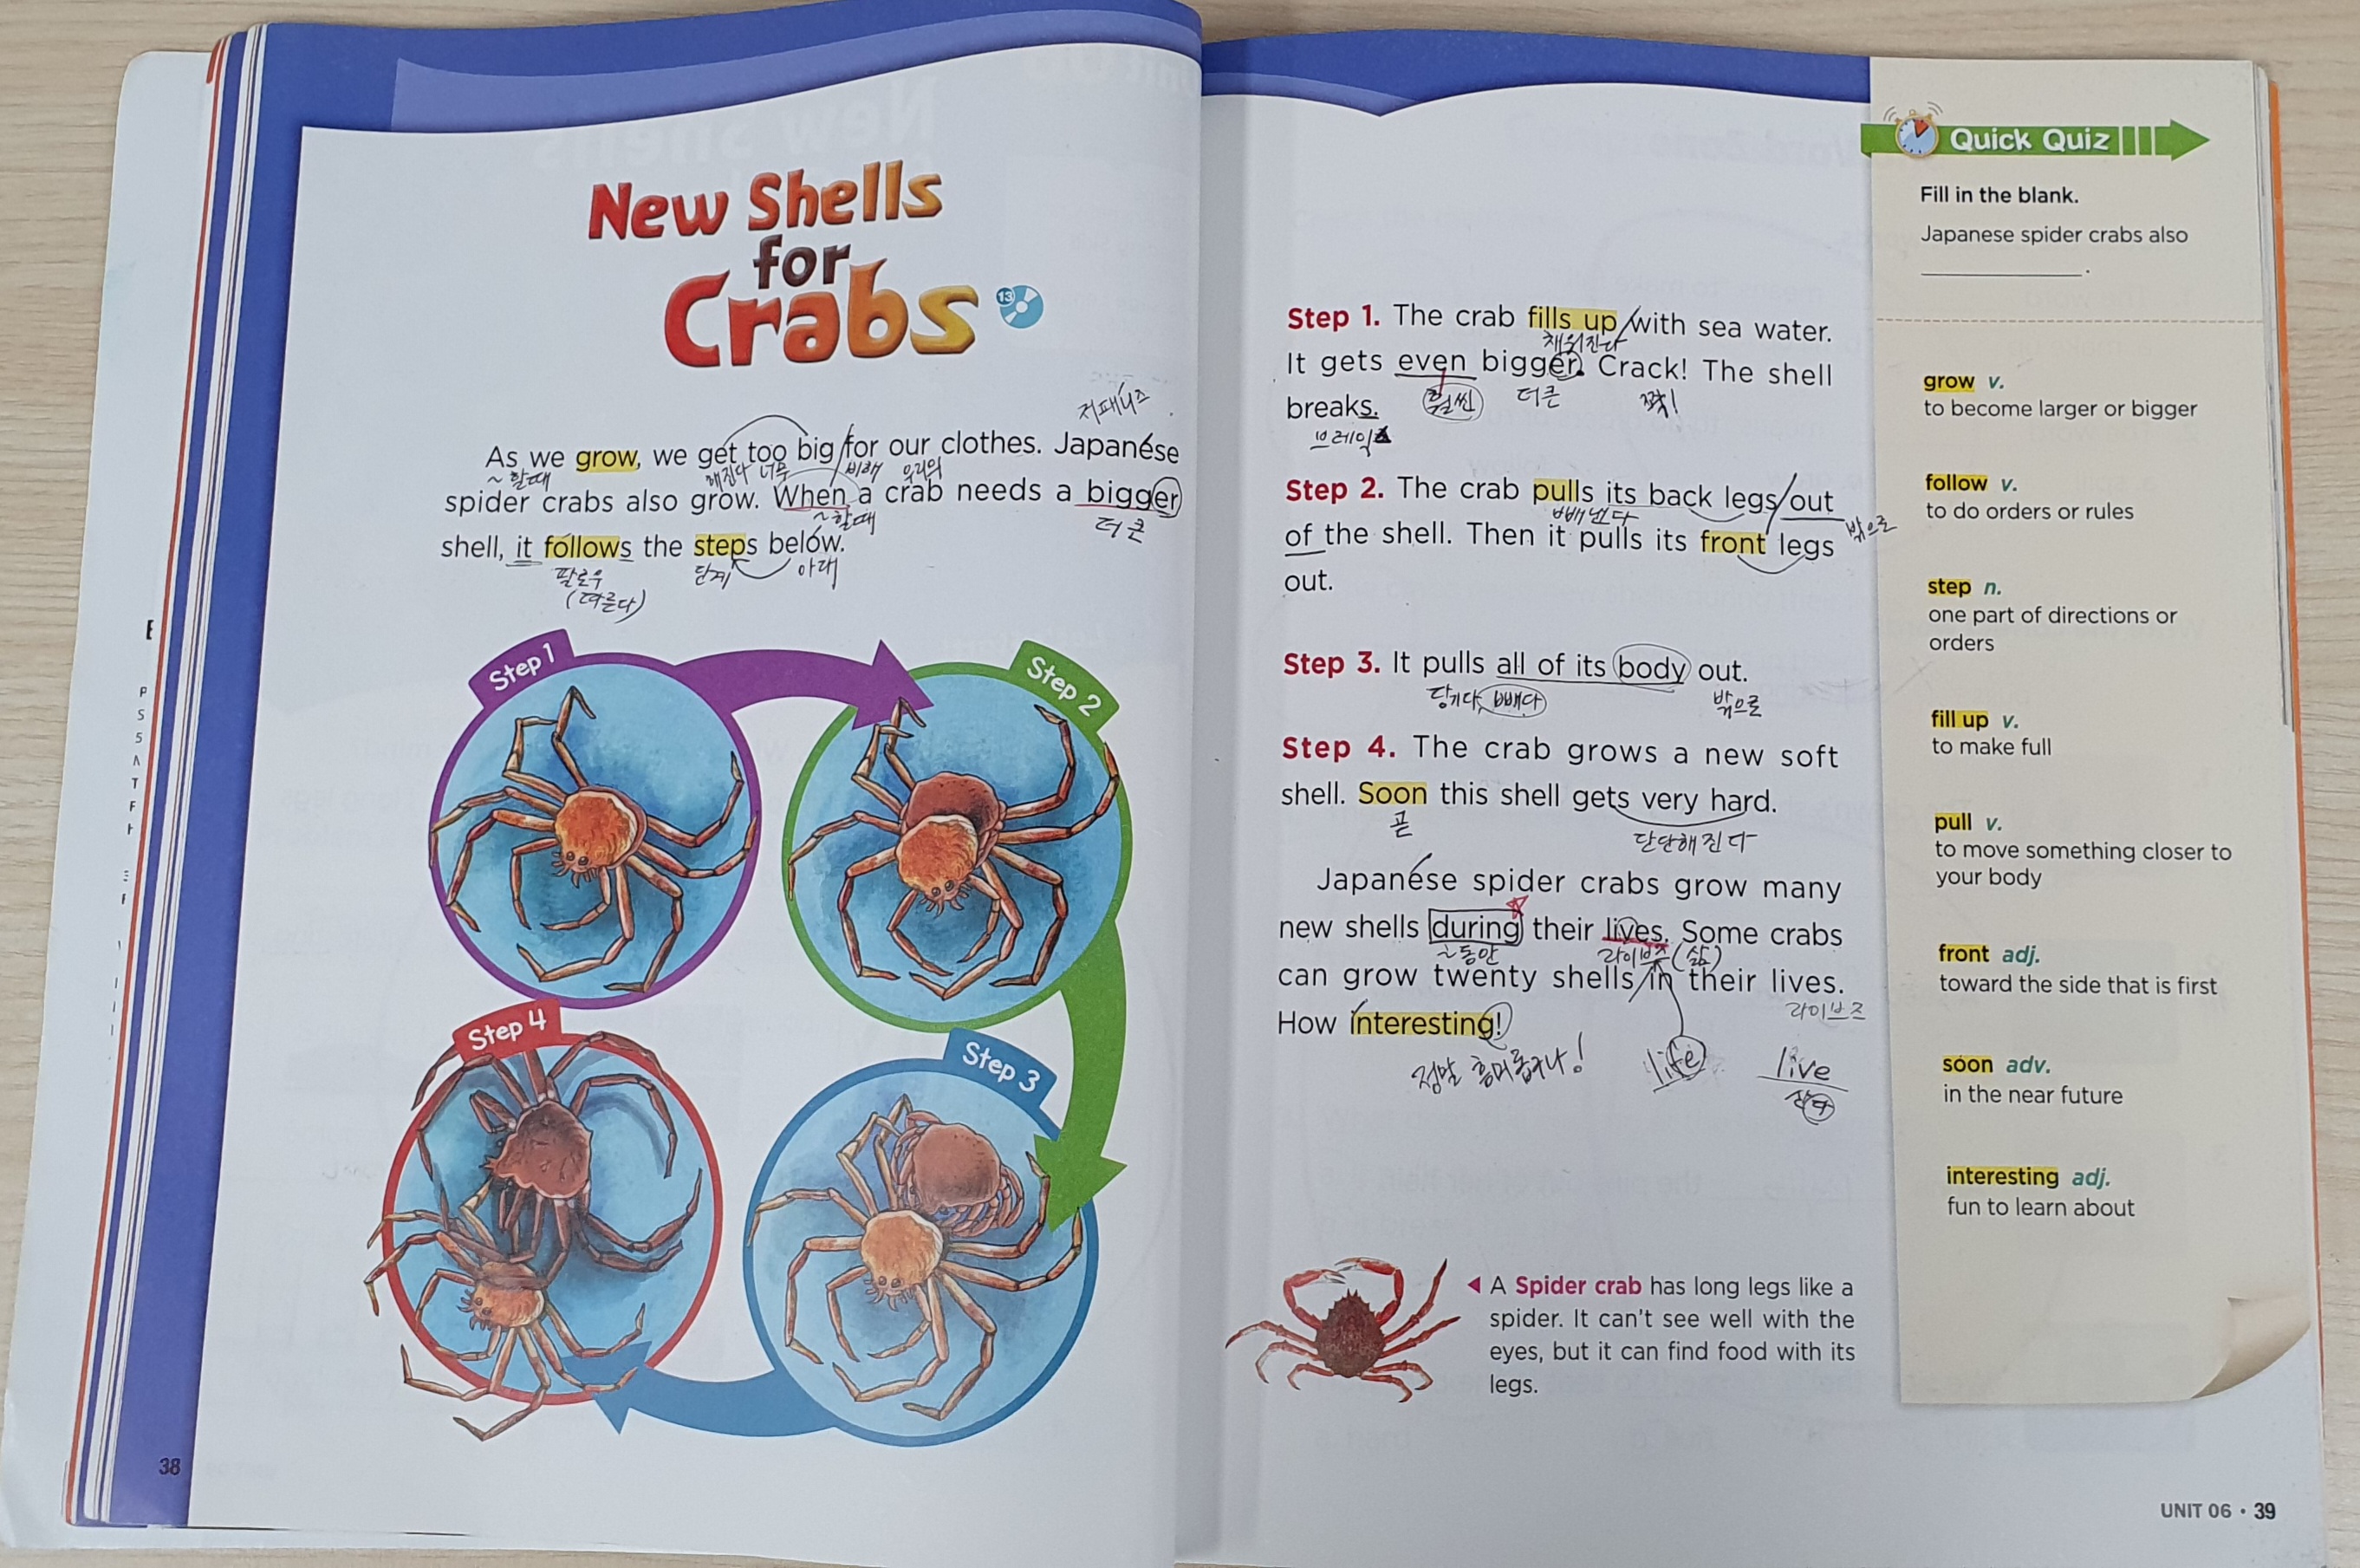 New Shells
for
Crabs
13
저패니즈
As we grow, we get too big for our clothes. Japanese
~할때
해진다 너무
비해 우리의
spider crabs also grow. When a crab needs a bigger
~할때
더 큰
shell, it follows the steps below.
팔로우
(따른다)
단계
아래
Step 1
Step 2
Step 3
Step 4
38
Step 1. The crab fills up with sea water.
채워진다
It gets even bigger. Crack! The shell
훨씬
더큰
짝!
breaks.
브레익
Step 2. The crab pulls its back legs out
빼낸다
밖으로
of the shell. Then it pulls its front legs
out.
Step 3. It pulls all of its body out.
당기다, 빼다
밖으로
Step 4. The crab grows a new soft
shell. Soon this shell gets very hard.
곧
단단해진다
Japanese spider crabs grow many
new shells during their lives. Some crabs
~동안
라이브즈 (삶)
can grow twenty shells in their lives.
라이브즈
How interesting!
정말 흥미롭구나!
life
live
산다
A Spider crab has long legs like a
spider. It can't see well with the
eyes, but it can find food with its
legs.
Quick Quiz
Fill in the blank.
Japanese spider crabs also
.
grow v.
to become larger or bigger
follow v.
to do orders or rules
step n.
one part of directions or
orders
fill up v.
to make full
pull v.
to move something closer to
your body
front adj.
toward the side that is first
soon adv.
in the near future
interesting adj.
fun to learn about
UNIT 06 • 39